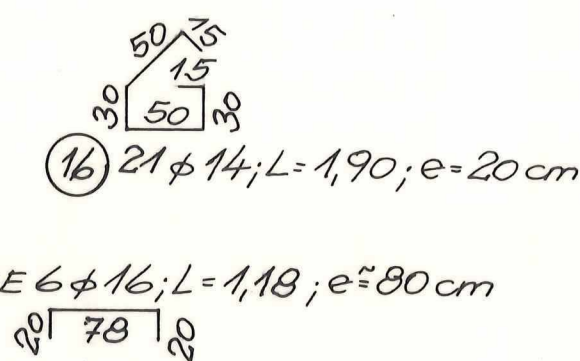 50 15
15
30 50 30
16 21 ϕ 14; L = 1,90; e = 20 cm
E 6 ϕ 16; L = 1,18; e ≅ 80 cm
20 78 20